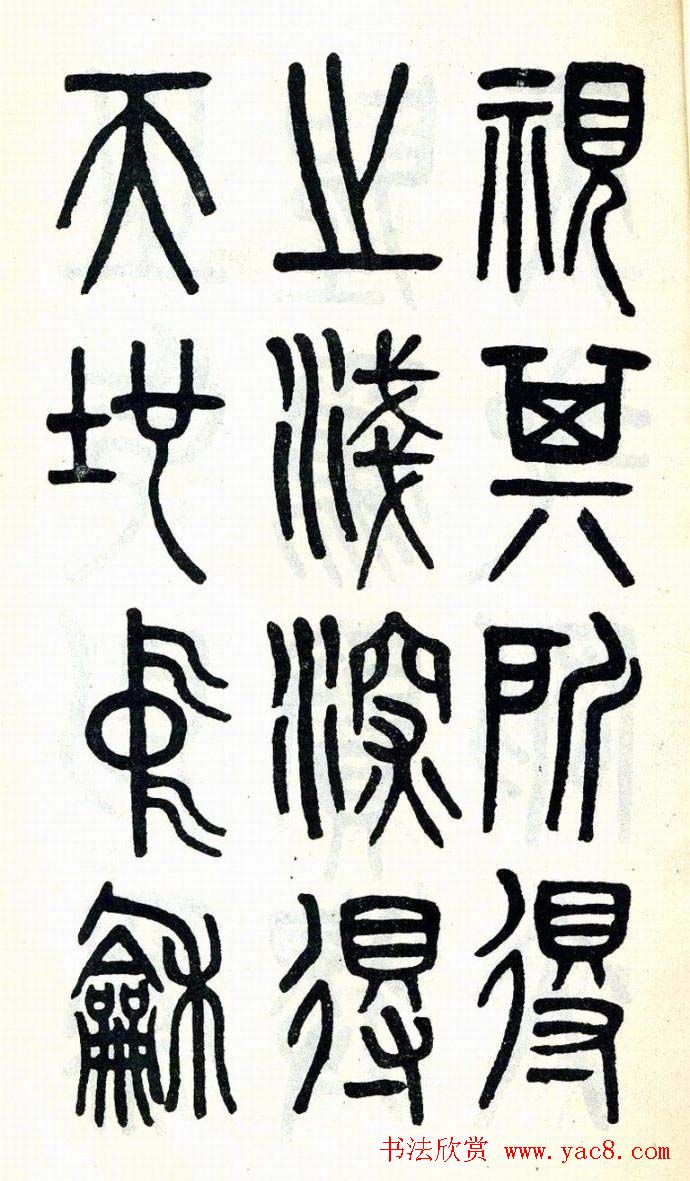 視其所得
之淺深得
天地中龢
书法欣赏 www.yac8.com